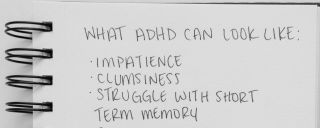 WHAT ADHD CAN LOOK LIKE:
· IMPATIENCE
· CLUMSINESS
· STRUGGLE WITH SHORT
TERM MEMORY